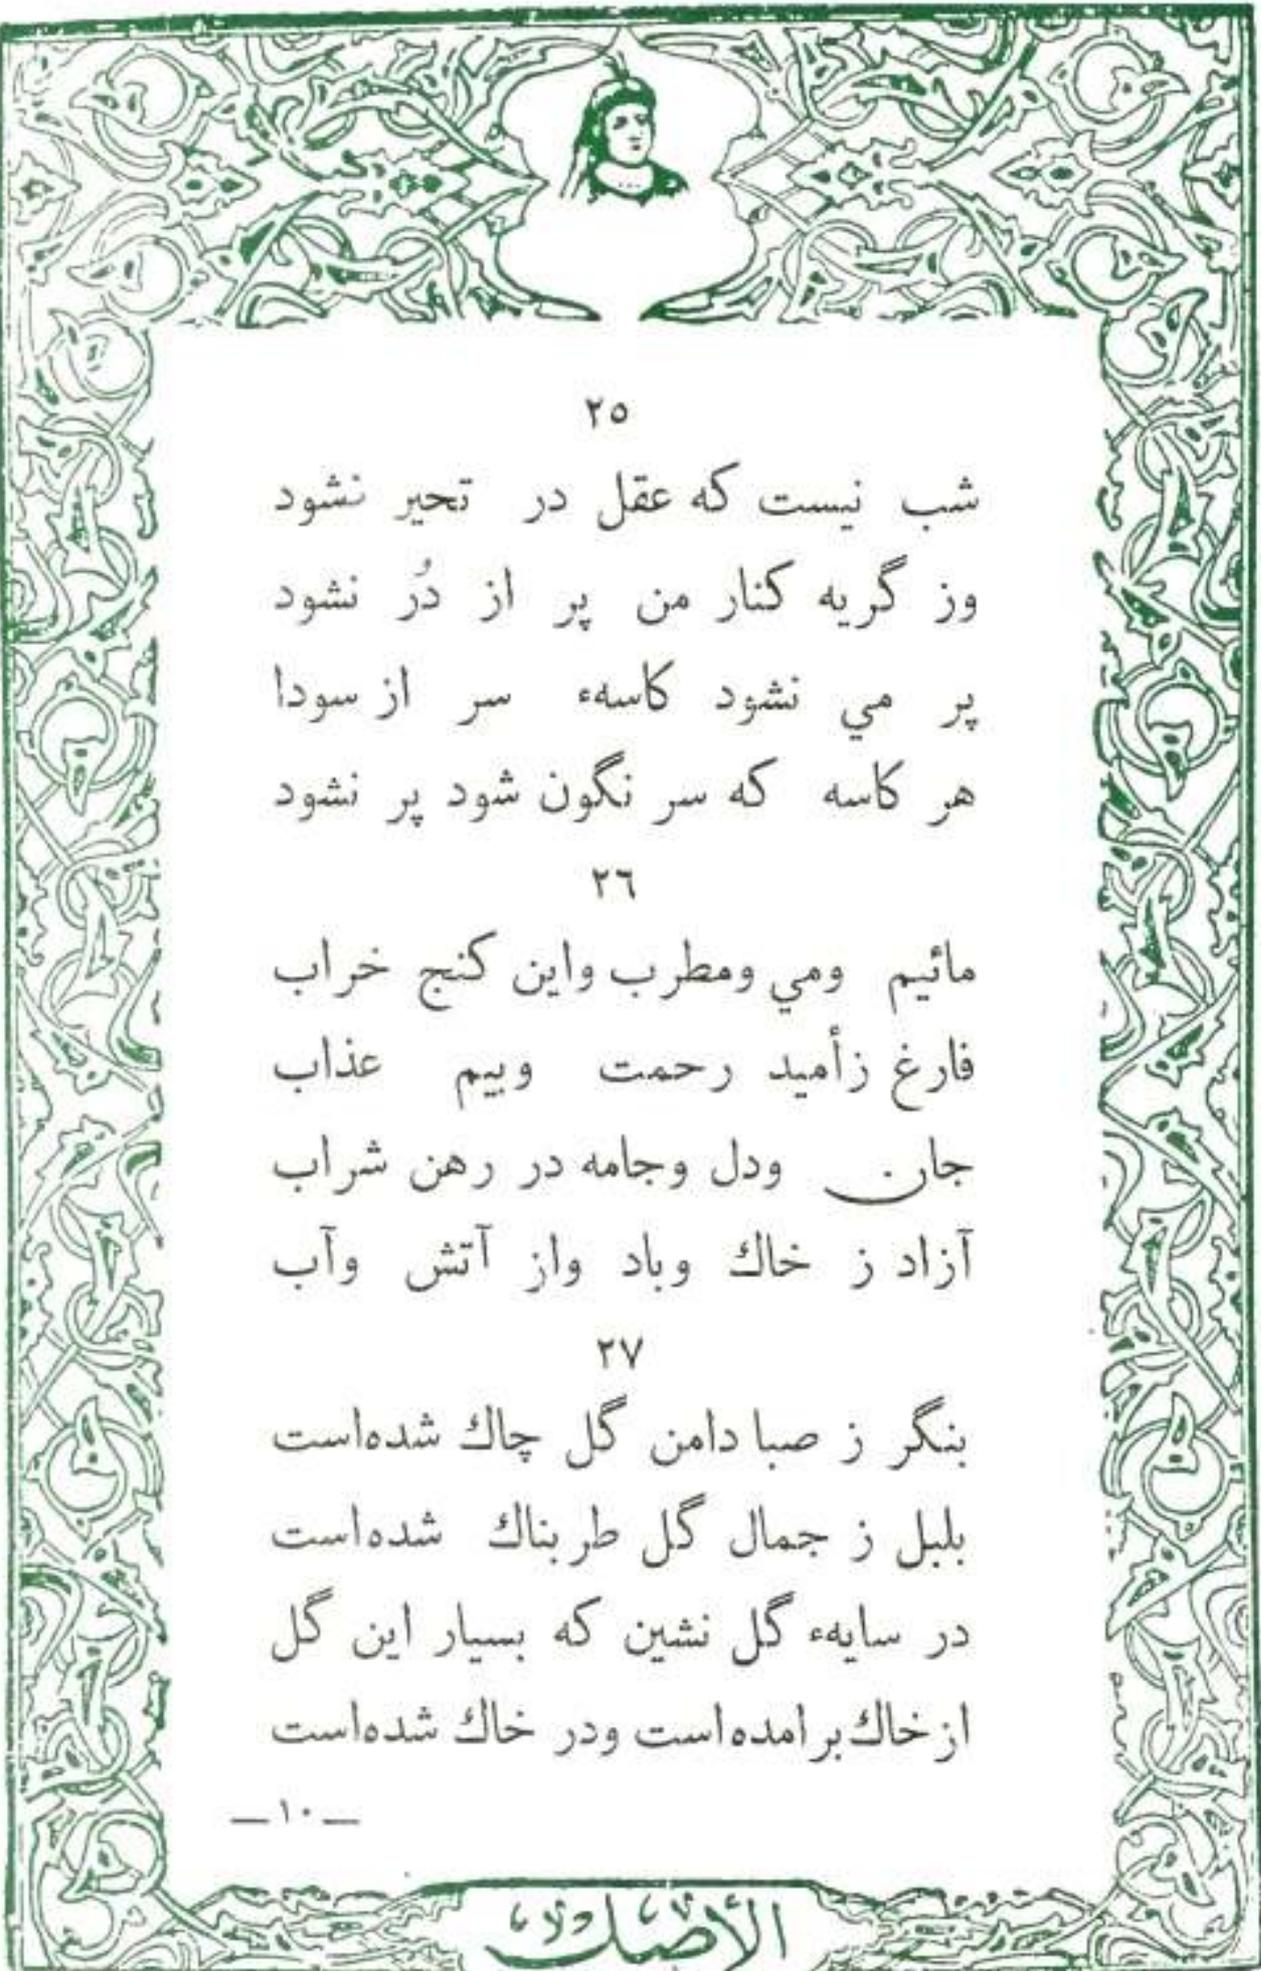 ٢٥
شب نیست که عقل در تحیر نشود
وز گریه کنار من پر از دُرّ نشود
پر مي نشود کاسهء سر از سودا
هر کاسه که سر نگون شود پر نشود
٢٦
مائیم ومي ومطرب واین کنج خراب
فارغ زأمید رحمت وبیم عذاب
جان ودل وجامه در رهن شراب
آزاد ز خاك وباد واز آتش وآب
٢٧
بنگر ز صبا دامن گل چاك شده‌است
بلبل ز جمال گل طربناك شده‌است
در سایهء گل نشین که بسیار این گل
از خاك برامده است ودر خاك شده‌است
—١٠—
الأصل